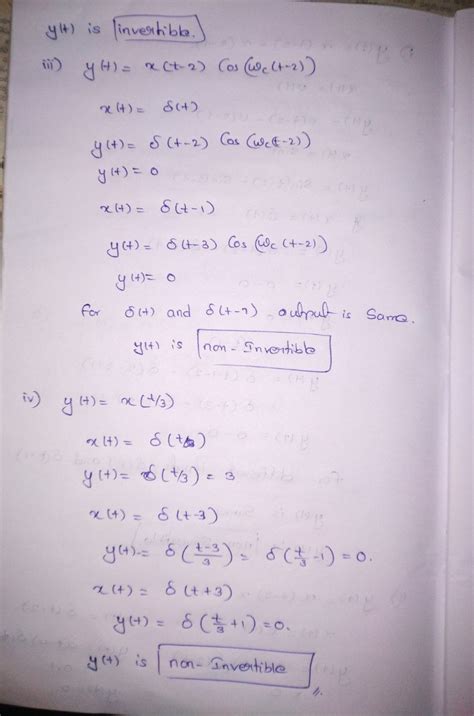 y(t) is invertible.
iii) y(t) = x(t-2) Cos (ωc(t-2))
x(t) = δ(t)
y(t) = δ(t-2) Cos (ωc(t-2))
y(t) = 0
x(t) = δ(t-1)
y(t) = δ(t-3) Cos (ωc (t-2))
y(t) = 0
for δ(t) and δ(t-1) output is Same.
y(t) is non-Invertible
iv) y(t) = x(t/3)
x(t) = δ(t)
y(t) = δ(t/3) = 3
x(t) = δ(t-3)
y(t) = δ(t-3/3) = δ(t/3 -1) = 0.
x(t) = δ(t+3)
y(t) = δ(t/3 +1) = 0.
y(t) is non-Invertible